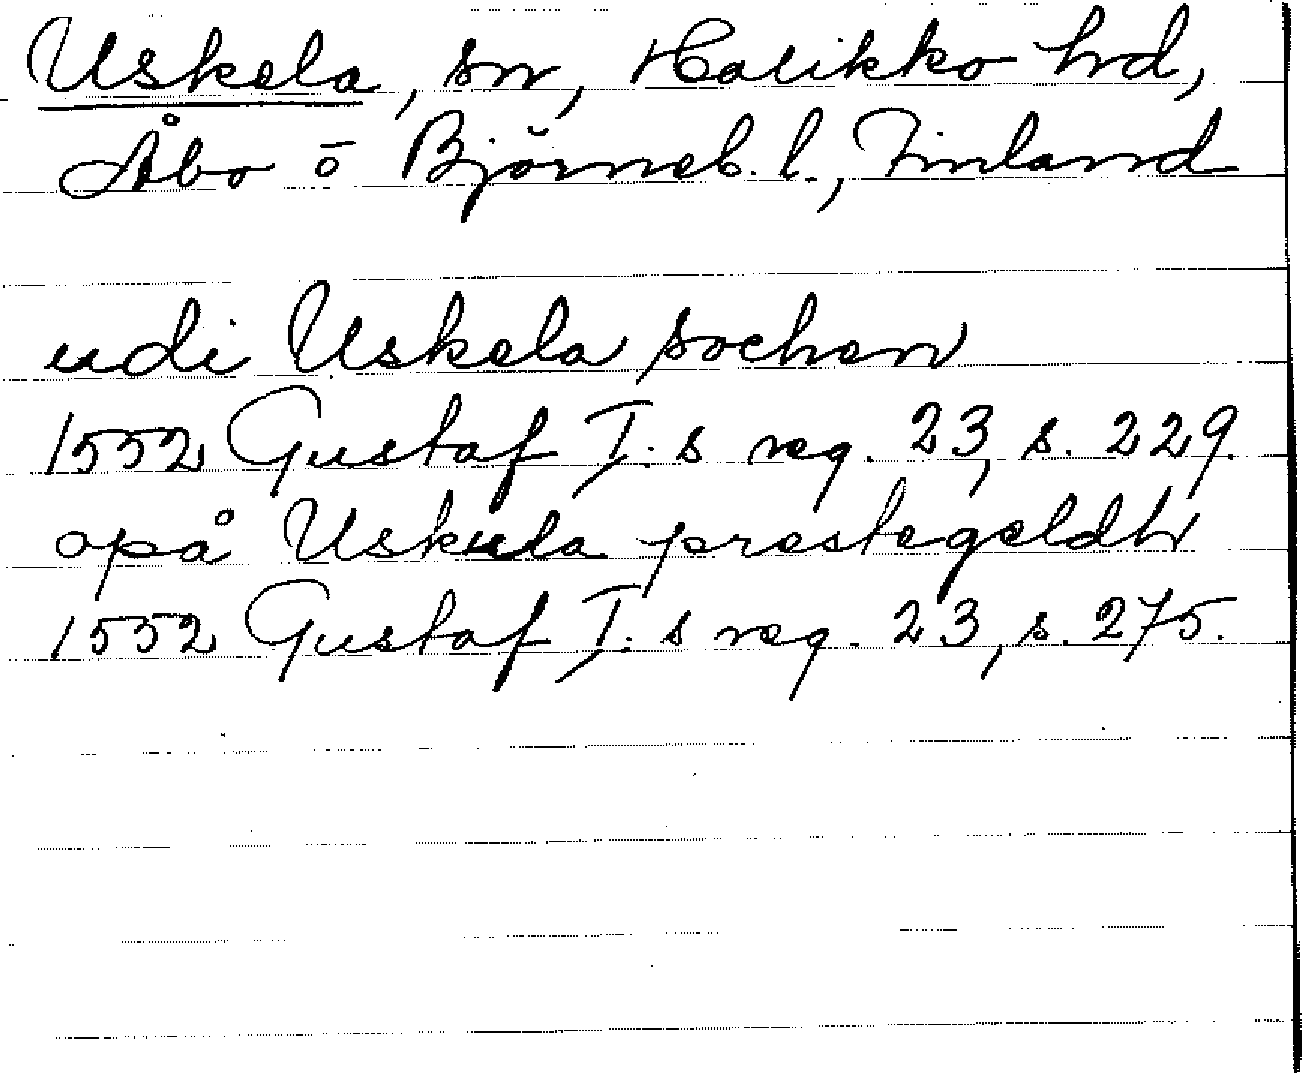 Uskela, sn, Halikko hd,
Åbo o Björneb. l., Finland
udi Uskela sochen
1552 Gustaf I.s reg. 23, s. 229.
opå Uskula prestegeldh
1552 Gustaf I.s reg. 23, s. 275.